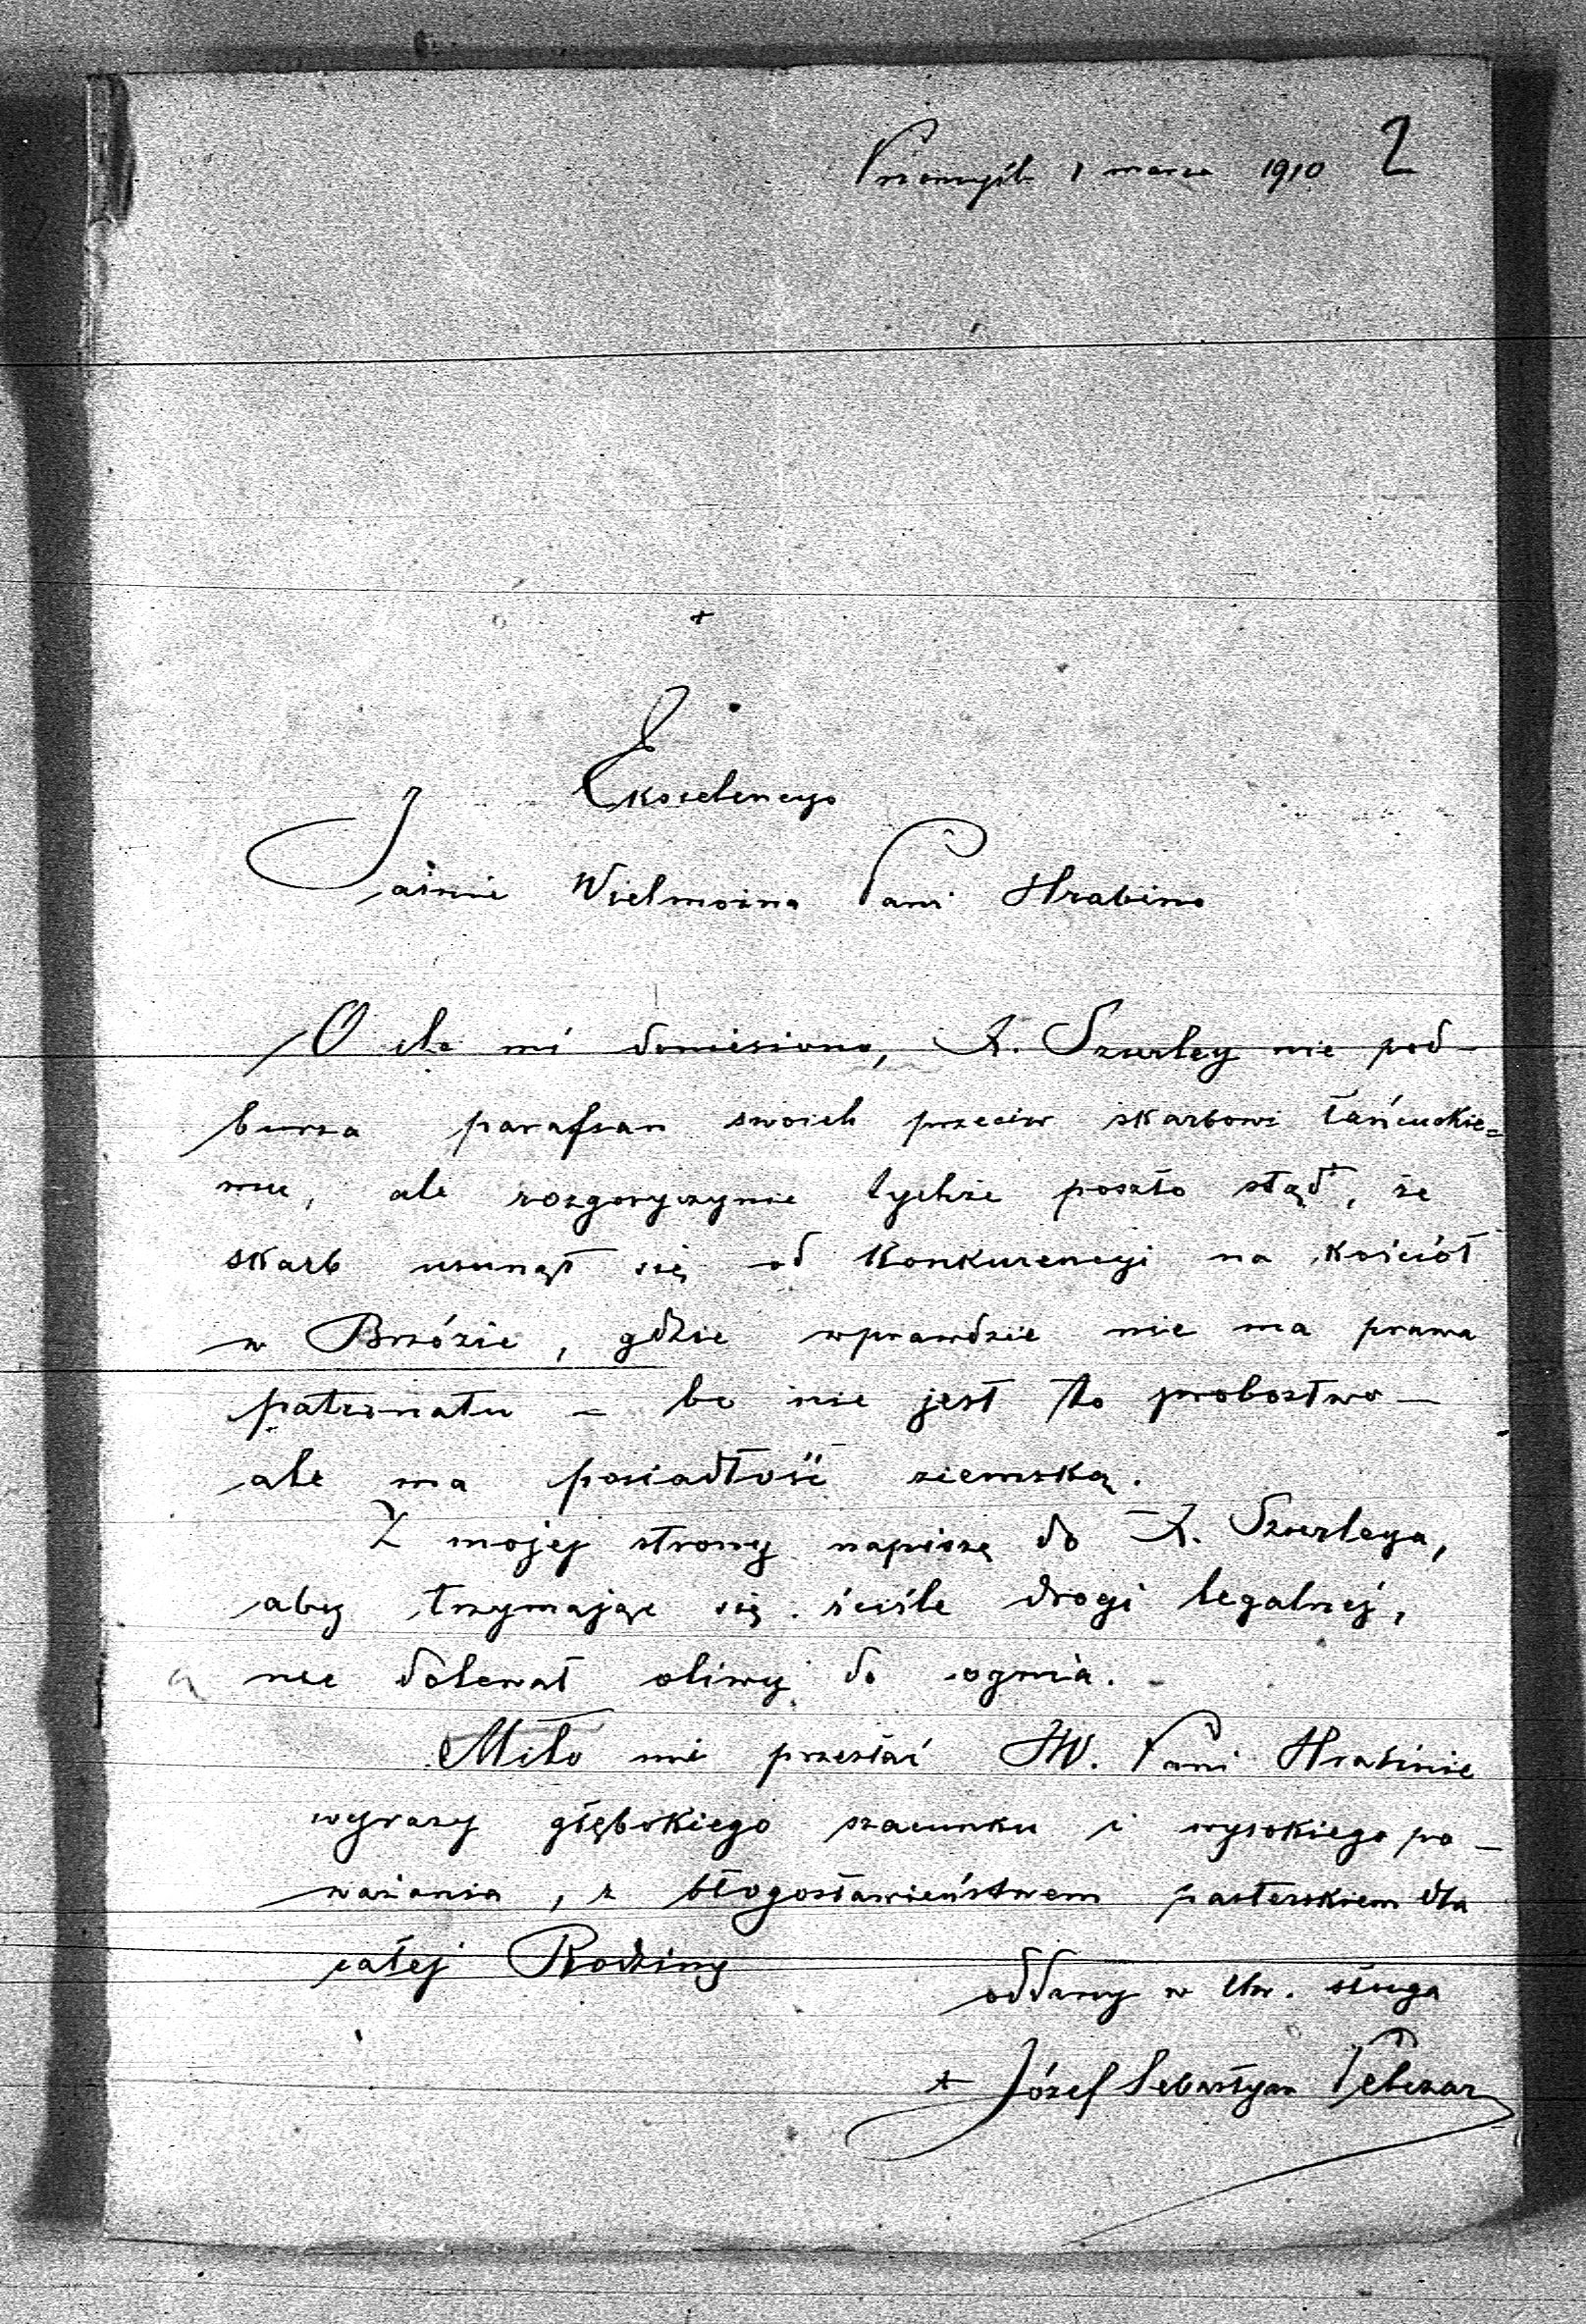 Przemyśl 1 marca 1910 2
+
Ekscelencyo
Jaśnie Wielmożna Pani Hrabino
O ile mi doniesiono, X. Szurley nie pod-
burza parafian swoich przeciw skarbowi łańcuckie=
mu, ale rozgoryczynie tychże poszło stąd, że
skarb usunął się od Konkurencyi na kościół
w Brzózie, gdzie wprawdzie nie ma prawa
patronatu – bo nie jest to probostwo –
ale ma posiadłość ziemską.
Z mojej strony napiszę do X. Szurleya,
aby trzymając się ściśle drogi legalnej,
nie dolewał oliwy do ognia.
Miło mi przesłać JW. Pani Hrabinie
wyrazy głębokiego szacunku i wysokiego po-
ważania, z błogosławieństwem pasterskiem dla
całej Rodziny
oddany w Chr. sługa
+ Józef Sebastyan Pelczar